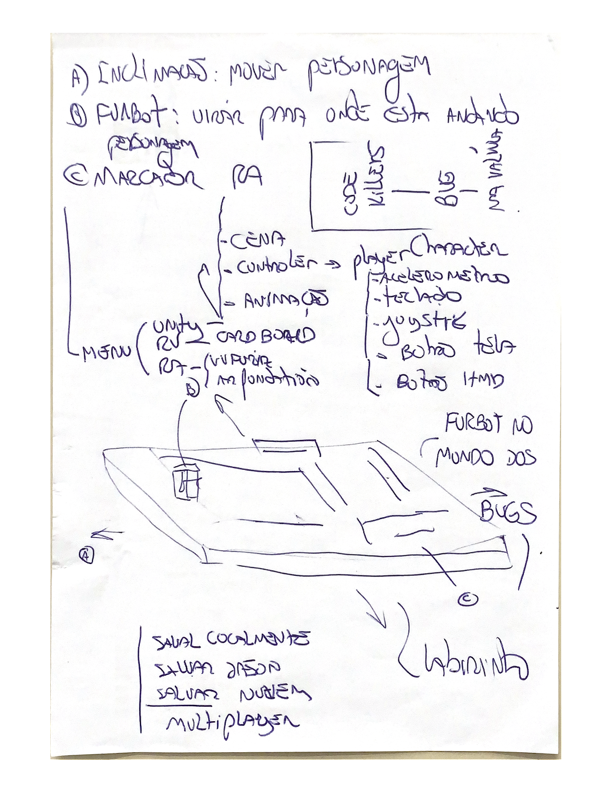 A) INCLINAÇÃO: MOVER PERSONAGEM
B) FURBOT: VIRAR PARA ONDE ESTA ANDANDO
PERSONAGEM
C MARCADOR RA
CODE
KILLERS
BUG
- CENA
- CONTROLER → playerCharacter
- ANIMAÇÃO
- ACELEROMETRO
- TECLADO
- JOYSTIC
- BOTÃO TELA
- BOTÃO HMD
MENU
UNITY
RV - CARD BOARD
RA - VUFORIA
B
FURBOT NO
MUNDO DOS
BUGS
A
C
LABIRINTO
SALVAR LOCALMENTE
SALVAR JASON
SALVAR NUVEM
MULTIPLAYER